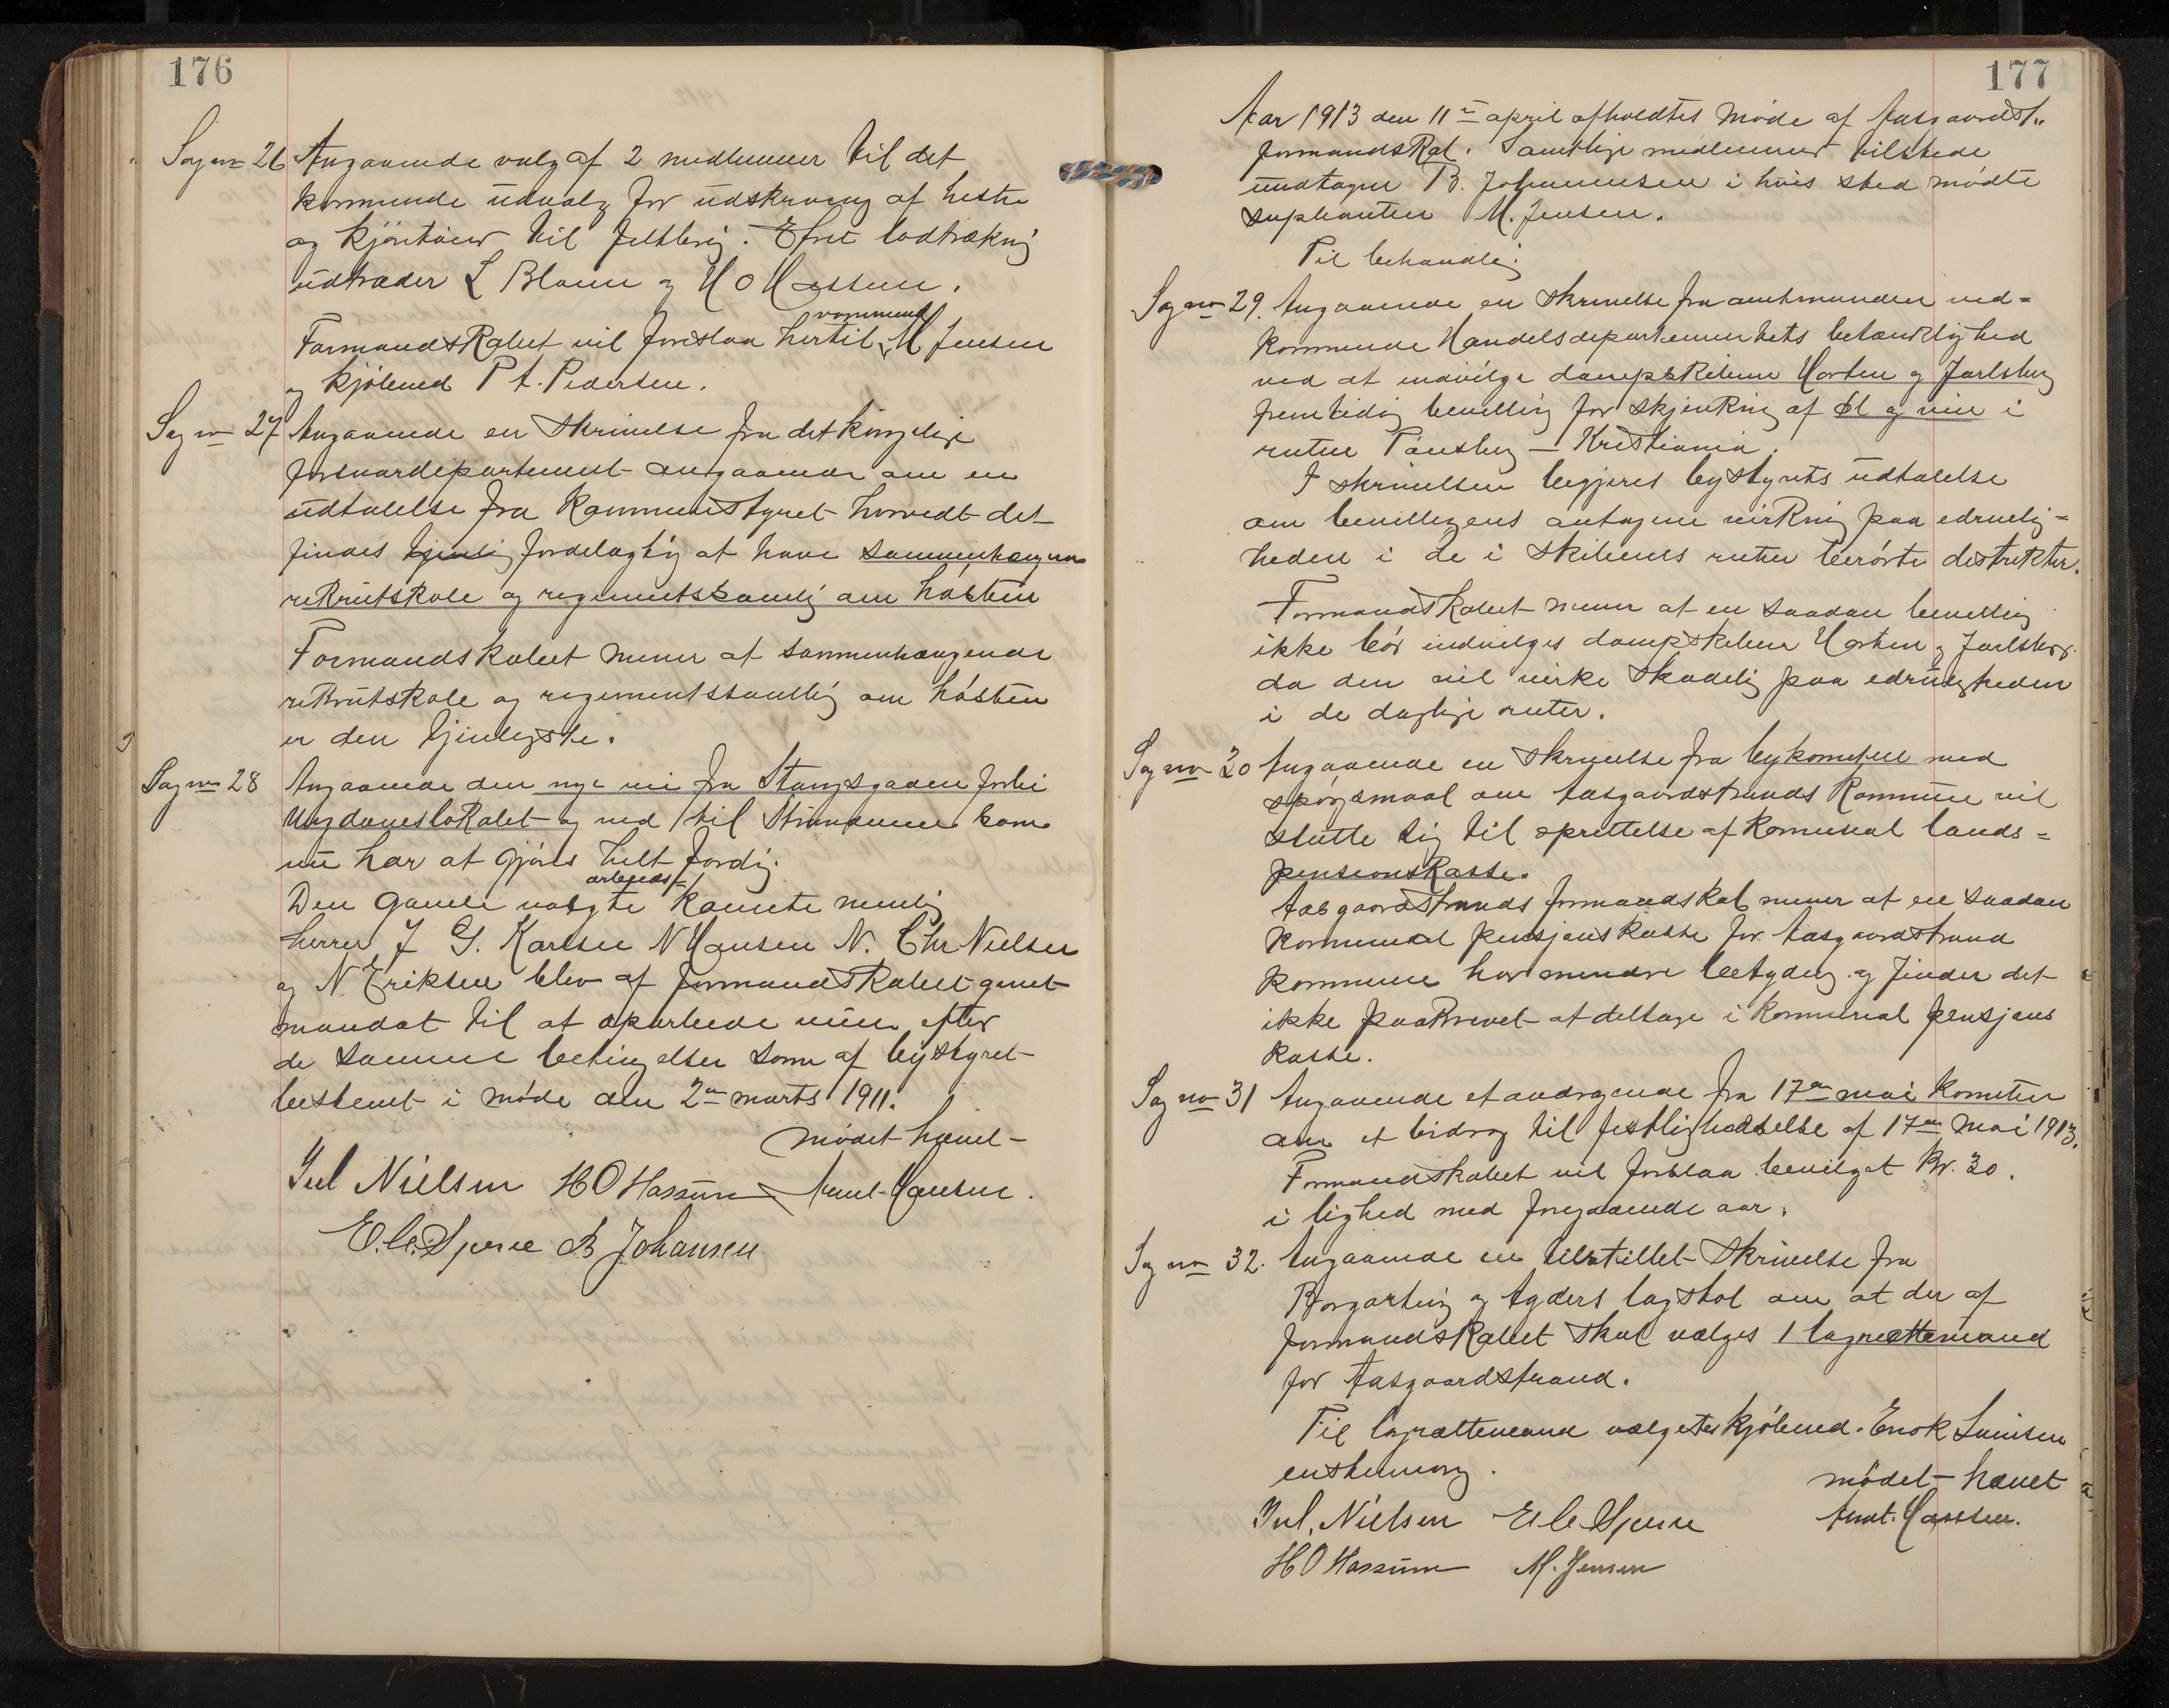 176
Sag no 26 Angaaende valg af 2 medlemmer til det
kommende udvalg for udskrivning af heste
og kjøretøier til feltbrug. Efter lodtrækning
udtræder L Blom og H O Hassum.
Formandskabet vil foreslaa hertil vognmand M Jensen
og kjøbmd P A. Pedersen.
Sag no 27 Angaaende en skrivelse fra det kongelige
forsvardepartement angaaende om en
udtalelse fra Kommunestyret hvorvidt det
findes tjenlig fordelagtig at have sammenhængende
rekrutskole og regimentssamling om høsten
Formandskabet mener at sammenhængende
rekrutskole og regimentssamling om høsten
er den tjenligste.
Sag no 28 Angaaende den nye vei fra Stangsgaden forbi
Ungdomslokalet og ned til Strandveien som
nu har at gjøres helt færdig.
Den gamle valgte arbeids- komite nemlig
herrer J G. Karlsen N Hansen N. Chr Nielsen
og N. Eriksen blev af formandskabet givet
mandat til at oparbeide veien efter
de samme betingelser som af bystyret
bestemt i møde den 2den marts 1911.
mødet hævet
Jul Nielsen H O Hassum Amt. Hansen.
E. C. Sperre B Johansen
177
Aar 1913 den 11te april afholdtes møde af Aasgaardst..
formandskab. Samtlige medlemmer tilstede
undtagen B. Johannesen i hvis sted mødte
suplianten M. Jensen.
Til behandling
Sag no 29. Angaaende en skrivelse fra amtmanden ved-
kommende Handelsdepartementets betænklighed
ved at indvilge dampskibene Horten og Jarlsberg
fremtidig bevilling for skjenkning af øl og vin i
ruten Tønsberg – Kristiania.
I skrivelsen begjæres bystyrets udtalelse
om bevillingens antagne virkning paa ædruelig-
heden i de i skibenes ruter berørte distrikter.
Formandskabet mener at en saadan bevilling
ikke bør indvilges dampskibene Horten og Jarlsberg
da den vil virke skadelig paa ædrueligheden
i de daglige ruter.
Sag no 30 Angaaende en skrivelse fra bykomiteen med
spørgsmaal om Aasgaardstrands Kommune vil
slutte sig til oprettelse af komunal lands-
pensionskasse.
Aasgaardstrands formandskab mener at en saadan
kommunal pensjonskasse for Aasgaardstrand
kommune har mindre betydning og finder det
ikke paakrævet at deltage i kommunal pensjons
kasse.
Sag no 31 Angaaende et andragende fra 17de mai komiteen
om et bidrag til festligholdelse af 17de mai 1913.
Formandskabet vil foreslaa bevilget Kr. 30.
i lighed med foregaaende aar.
Sag no 32. Angaaende en tilstillet skrivelse fra
Borgarting og Agders lagstol om at der af
formandskabet skal vælges 1 lagrettemand
for Aasgaardstrand.
Til lagrættemand valgtes kjøbmd. Enok
enstemmig.
mødet hævet
Jul. Nielsen E C Sperre Amt. Hansen.
H O Hassum M. Jensen